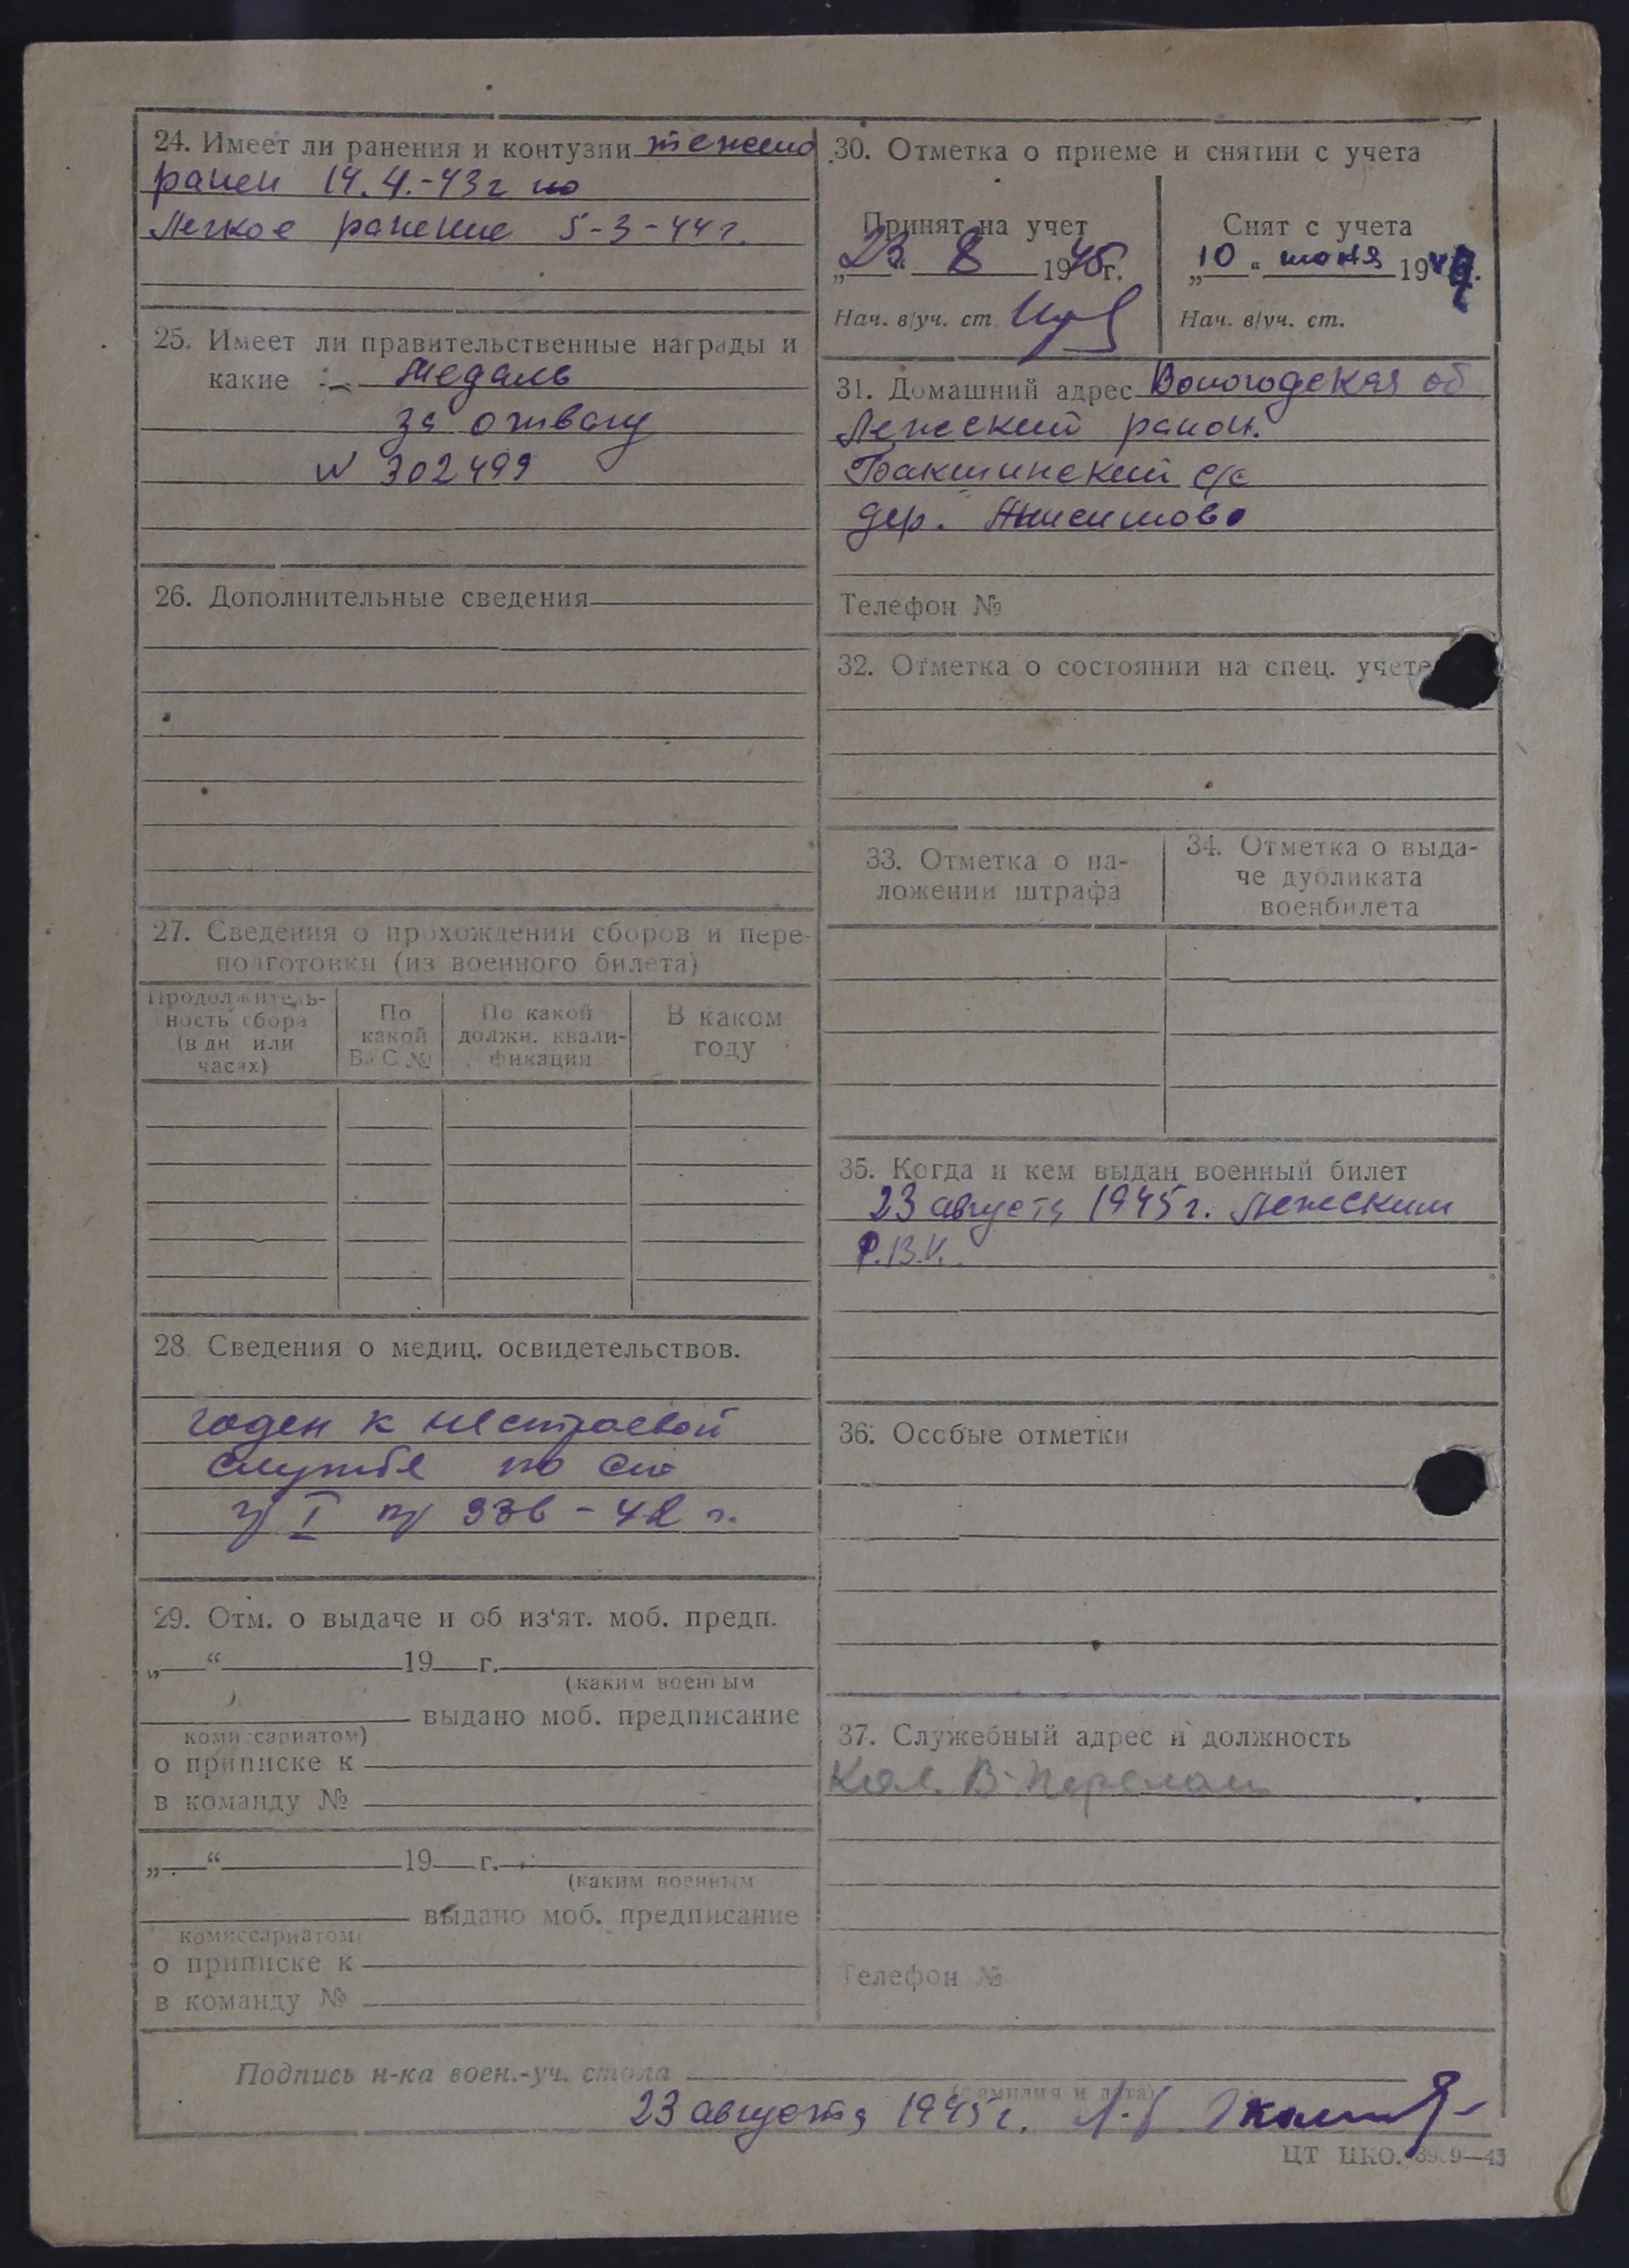 24. Имеет ли ранения и контузии тяжело
ранен 14.4.-43г
Легкое ранение 5-3-44г.
25. Имеет ли правительственные награды и
какие :- Медаль
за отвагу
N 302499
26. Дополнительные сведения
27. Сведения о прохождении сборов и пере-
подготовки (из военного билета)
Продолжитель-
ность сбора
(в дн. или
часах)
По
какой
ВуС №
По какой
должн. квали-
фикации
В каком
году
28. Сведения о медиц. освидетельствов.
годен к нестроевой
службе по
гр I пр 336-42 г.
29. Отм. о выдаче и об из‘ят. моб. предп.
„ “ 19 г.
(каким военным
выдано моб. предписание
комиссариатом)
о приписке к
в команду №
„ “ 19 г.
(каким военным
выдано моб. предписание
комиссариатом)
о приписке к
в команду №
30. Отметка о приеме и снятии с учета
Принят на учет
„23“ 8 1945г.
Нач. в/уч. ст.
Снят с учета
„10“ июня 194 г.
Нач. в/уч. ст.
31. Домашний адрес Вологодская об
Лежский район.
Бакшинский с/с
дер. Анисимово
Телефон №
32. Отметка о состоянии на спец. учете
33. Отметка о на-
ложении штрафа
34. Отметка о выда-
че дубликата
военбилета
35. Когда и кем выдан военный билет
23 августа 1945г. Лежским
Р.В.К.
36. Особые отметки
37. Служебный адрес и должность
Кол. В-Перелом
Телефон №
Подпись н-ка воен.-уч. стола
(фамилия и дата)
23 августа 1945г.
ЦТ ЦКО.